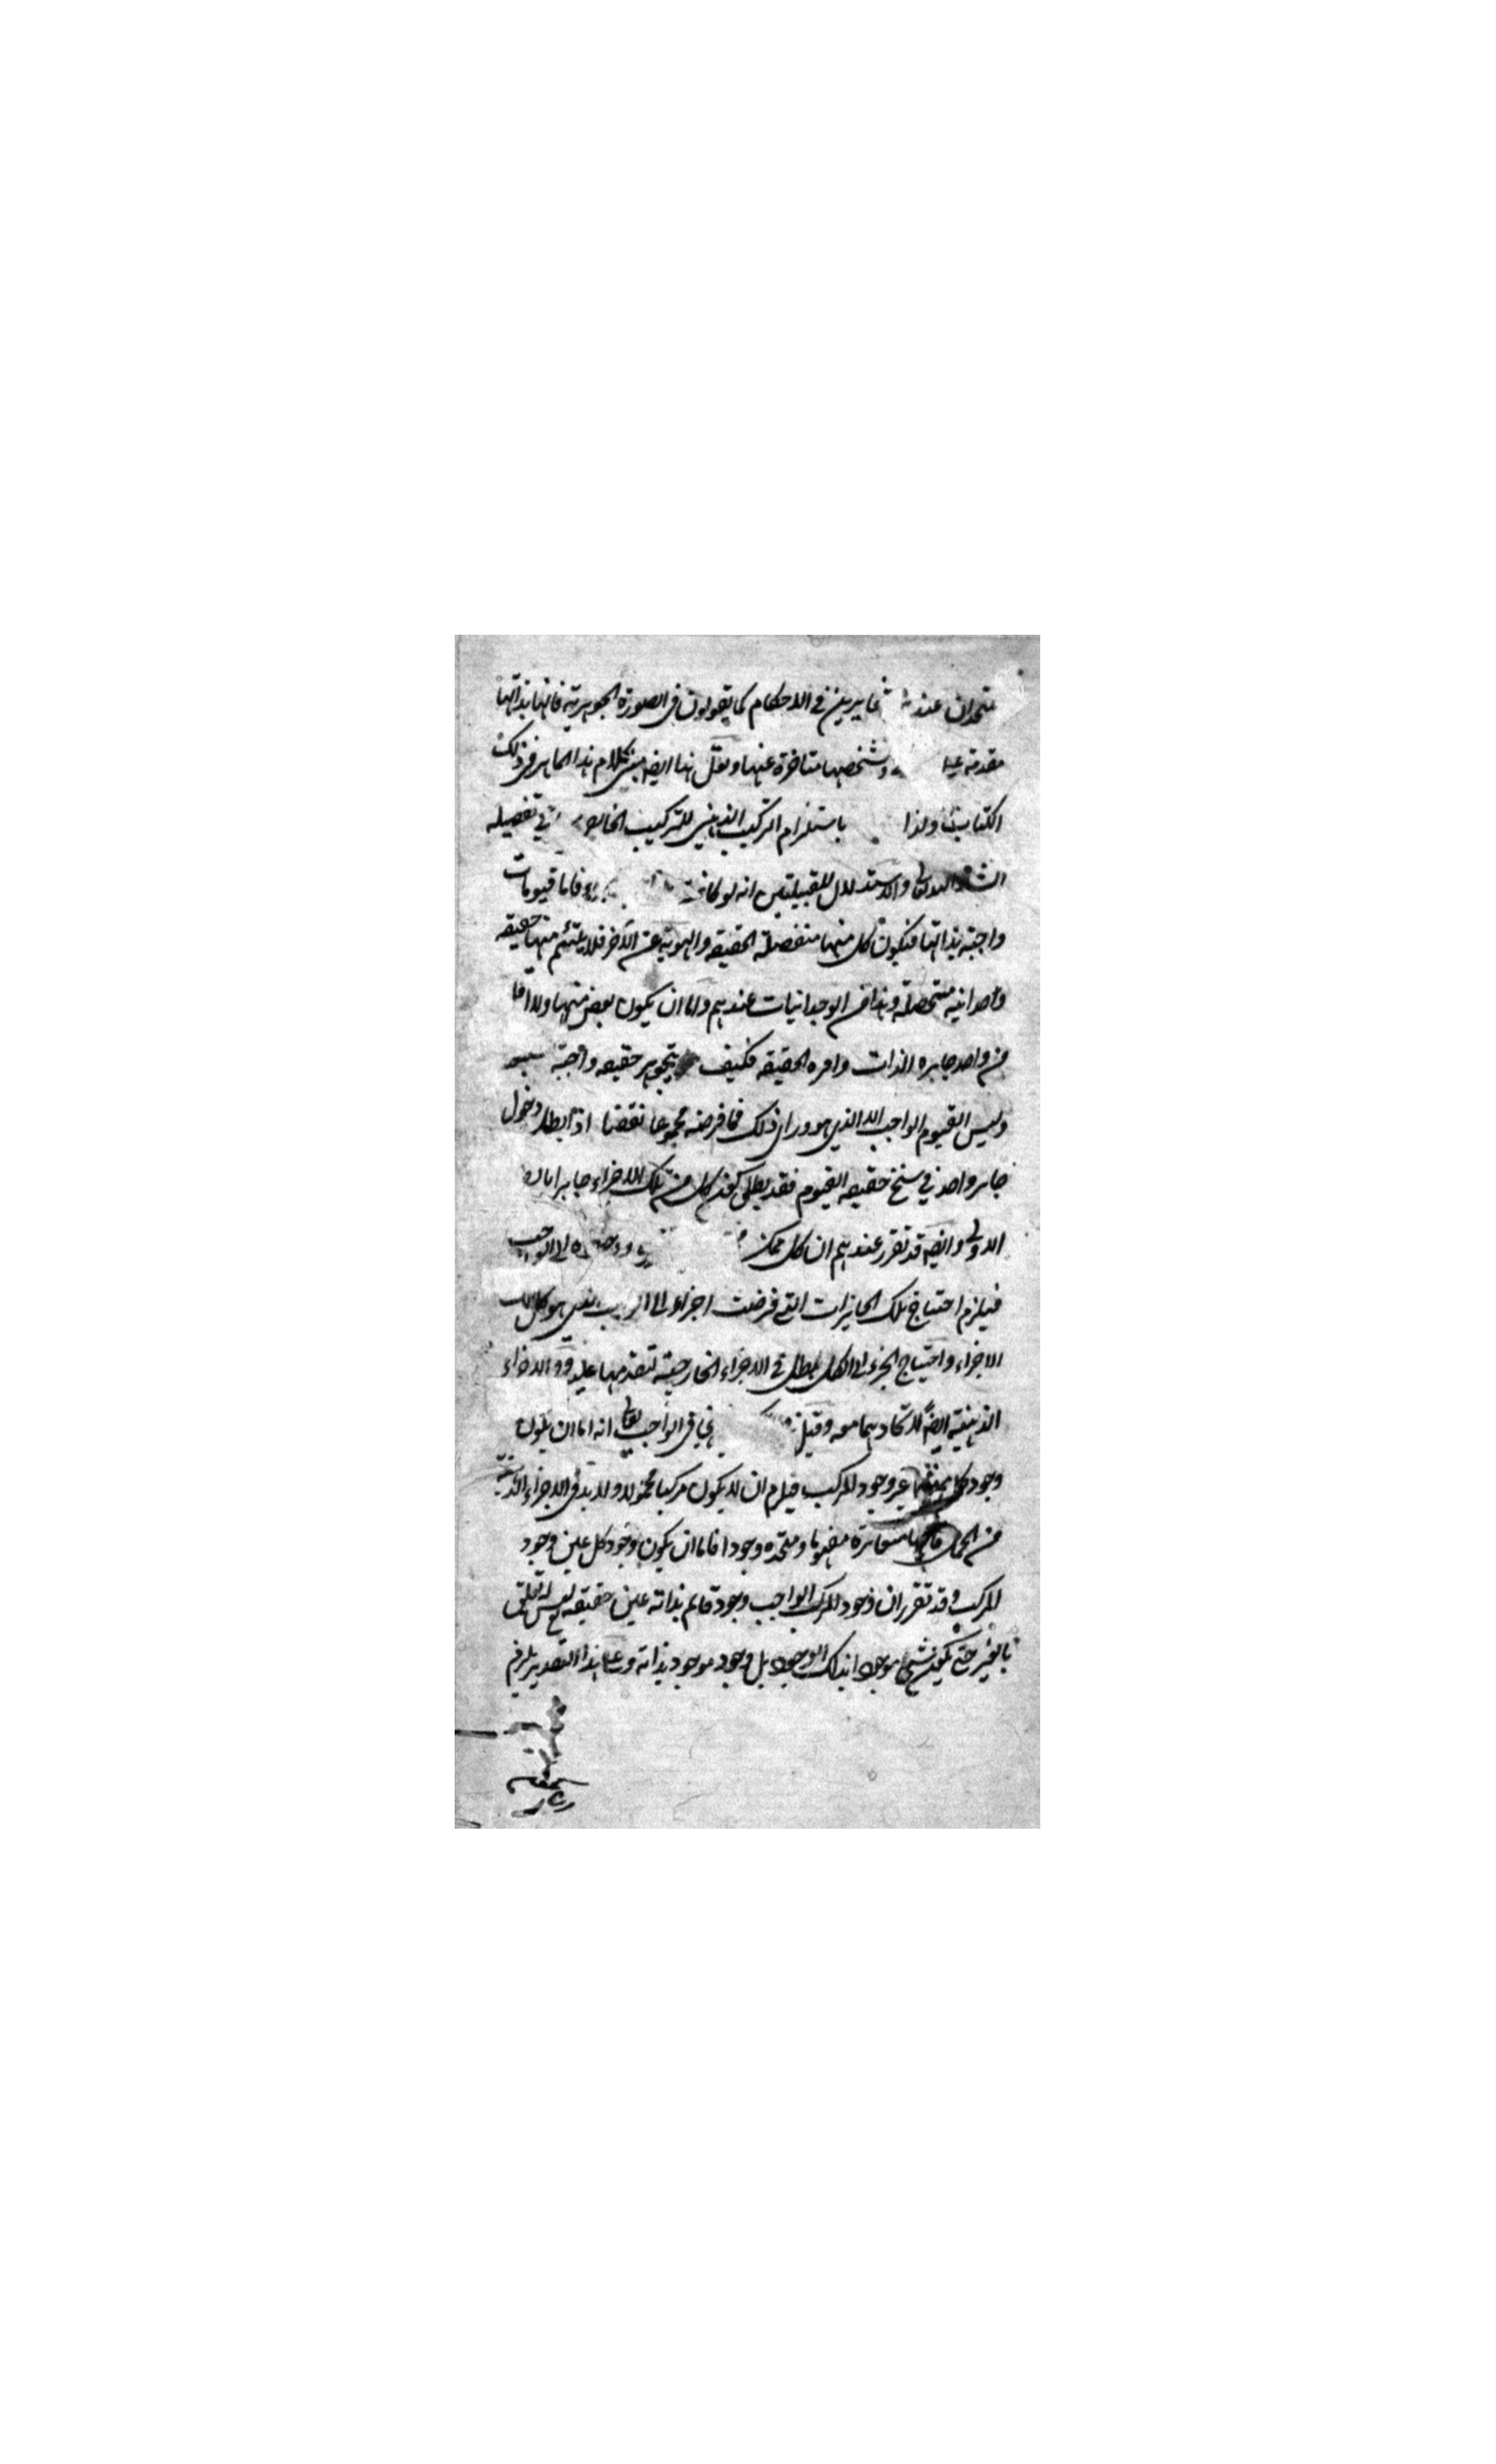 متحدان عند متغايرين في الاحكام كما يقولون في الصورة الجوهرية فانها بذاتها
مقدمة على وتشخصها متاخرة عنها ولعل هذا ايضا مبنى كلام هذا الماهر في ذلك
الكتاب ولذا باستلزام التركيب الذهني للتركيب الخارجي في تفصيله
ان شاء الله تعالى والاستدلال للقبيلتين انه لو كان فاما قيومات
واجبة بذاتها فيكون كل منها منفصلة الحقيقة والهوية عن الآخر فلا يلتئم منها حقيقة
واحدانية متحصلة وهذا من الوجدانيات عندهم واما ان يكون بعض منها ولا اقل
من واحد جايزه الذات وامره الحقيقة فكيف يتجوهر حقيقة واجبة
وليس القيوم الواجب الا الذي هو وراء ذلك فما فرضنه مجموعا نقضنا اذا بطل دخول
جايز واحد في سنخ حقيقة القيوم فقد بطل كون كل من تلك الاجزاء جايزا
الاولى وايضا قد تقرر عندهم ان كل ممكن الى الواجب
فيلزم احتياج تلك الجايزات التي فرضت اجزاء الى الواجب الذي هو كل تلك
الاجزاء واحتياج الجزء الى الكل يبطل في الاجزاء الخارجية لتقدمها عليه والاجزاء
الذهنية ايضا لاتحادهما معه وقيل في الواجب تعالى انه اما ان يكون
وجود كل منها غير وجود المركب فيلزم ان لا يكون مركبا محمولا ولا بد في الاجزاء الذهنية
من الحمل فانها متغايرة مفهوما ومتحدة وجودا فاما ان يكون وجود كل عين وجود
المركب وقد تقرر ان وجود المركب الواجب وجود قائم بذاته عين حقيقة ليس له تعلق
بالغير حتى يكون شيئا موجودا بذلك الوجود بل وجود موجود بذاته وعلى هذا التقدير يلزم